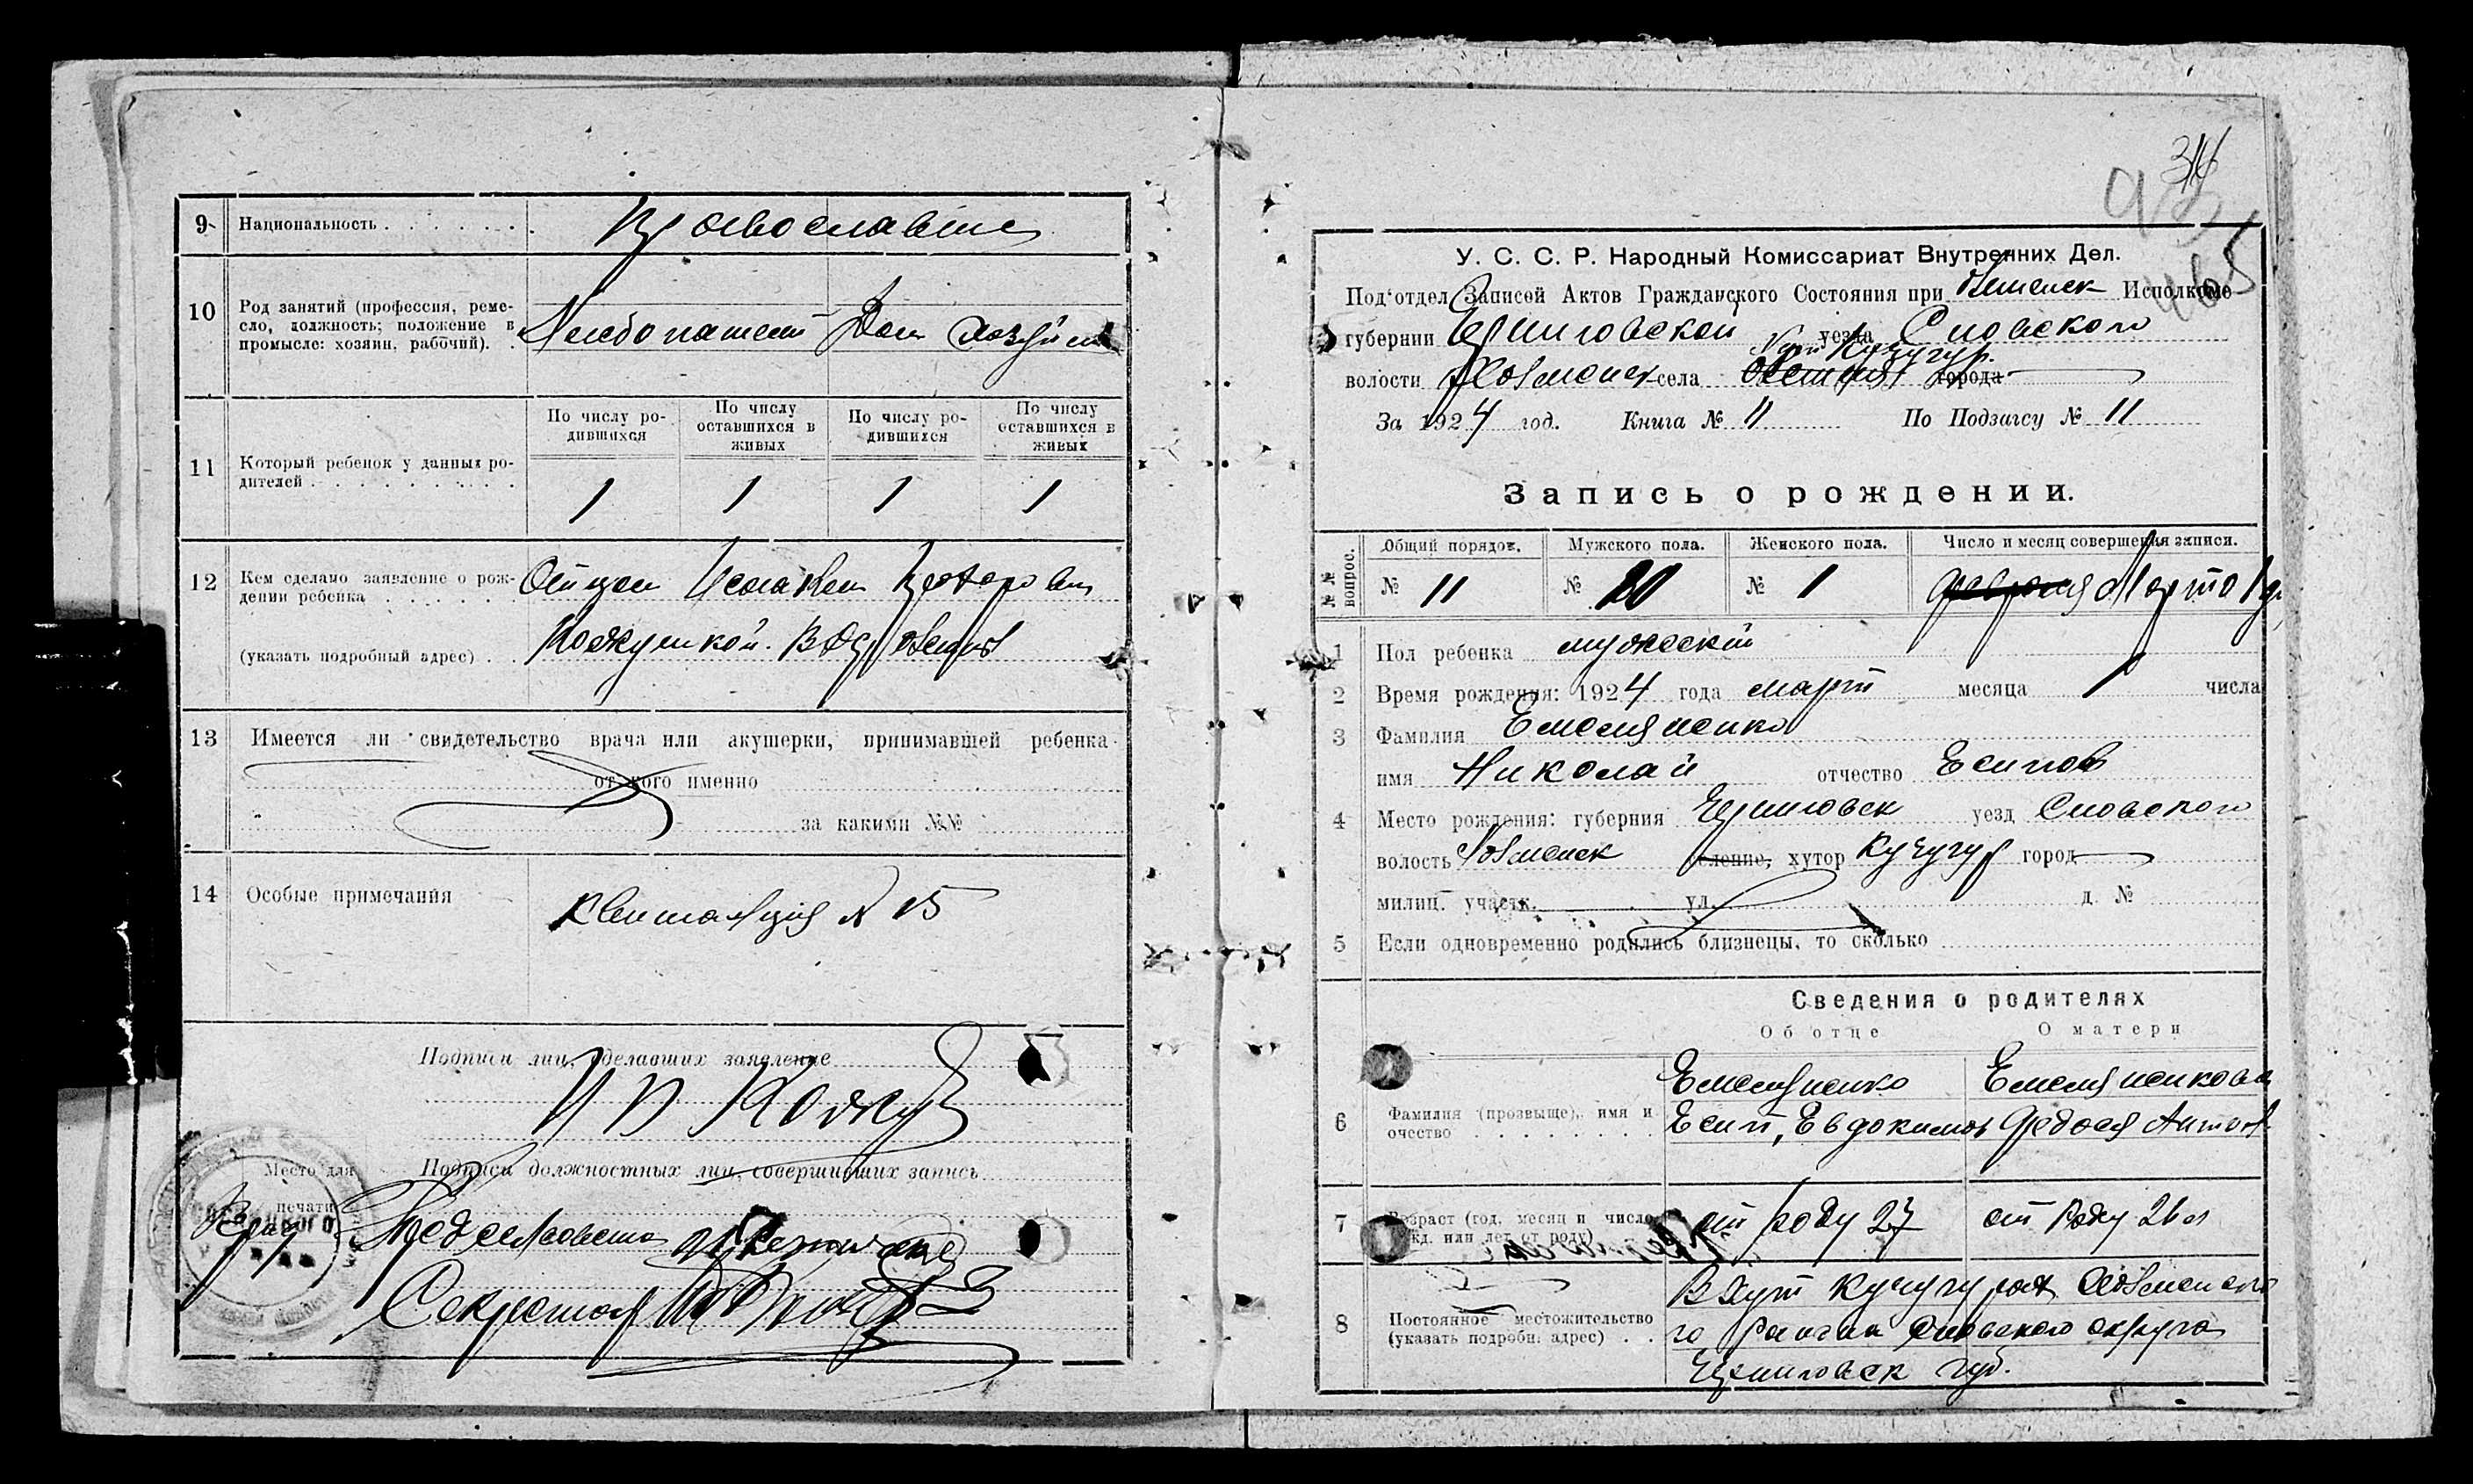 9 Национальность . . . . . . . Православные
10 Род занятий (профессия, реме-
сло, должность; положение в
промысле: хозяин, рабочий). . Хлебопашест Дом Хозяйств
По числу ро-
дившихся
По числу
оставшихся в
живых
По числу ро-
дившихся
По числу
оставшихся в
живых
11 Который ребенок у данных ро-
дителей . . . . . . . . . .
1 1 1 1
12 Кем сделано заявление о рож-
дении ребенка . . . . . . Отцом
(указать подробный адрес) . .
13 Имеется ли свидетельство врача или акушерки, принимавшей ребенка
от кого именно
за какими №№
14 Особые примечания
Квитанция № 15
Подписи лиц, сделавших заявление
Подписи должностных лиц, совершивших запись
Место для
печати
Секретарь
314
465
У. С. С. Р. Народный Комиссариат Внутренних Дел.
Под'отдел Записей Актов Гражданского Состояния при Исполкоме
губернии Черниговской уезда Сновского
хут Кучугур.
волости Холменск села города
За 1924 год. Книга № 11 По Подзагсу № 11
Запись о рождении.
№№ вопрос.
Общий порядок. Мужского пола. Женского пола. Число и месяц совершения записи.
№ 11 № № 1 февраля Марта
1 Пол ребенка мужеский
2 Время рождения: 1924 года март месяца 1 числа
3 Фамилия Емеляненко
имя Николай отчество Есипов
4 Место рождения: губерния Черниговск уезд Сновского
волость Холменск селение, хутор Кучугур город
милиц. участк. ул. д. №
5 Если одновременно родились близнецы, то сколько
Сведения о родителях
Об отце О матери
Емеляненко Емеляненкова
6 Фамилия (прозвыще), имя и
очество . . . . . . . . Есип, Евдокимов Федося Антонов.
7 Возраст (год, месяц и число
рожд. или лет от роду) от роду 27 от Роду 26 л
В хут Кучугурах Холменско
8 Постоянное местожительство
(указать подробн. адрес) . . го района Сновского округа
Черниговск губ.